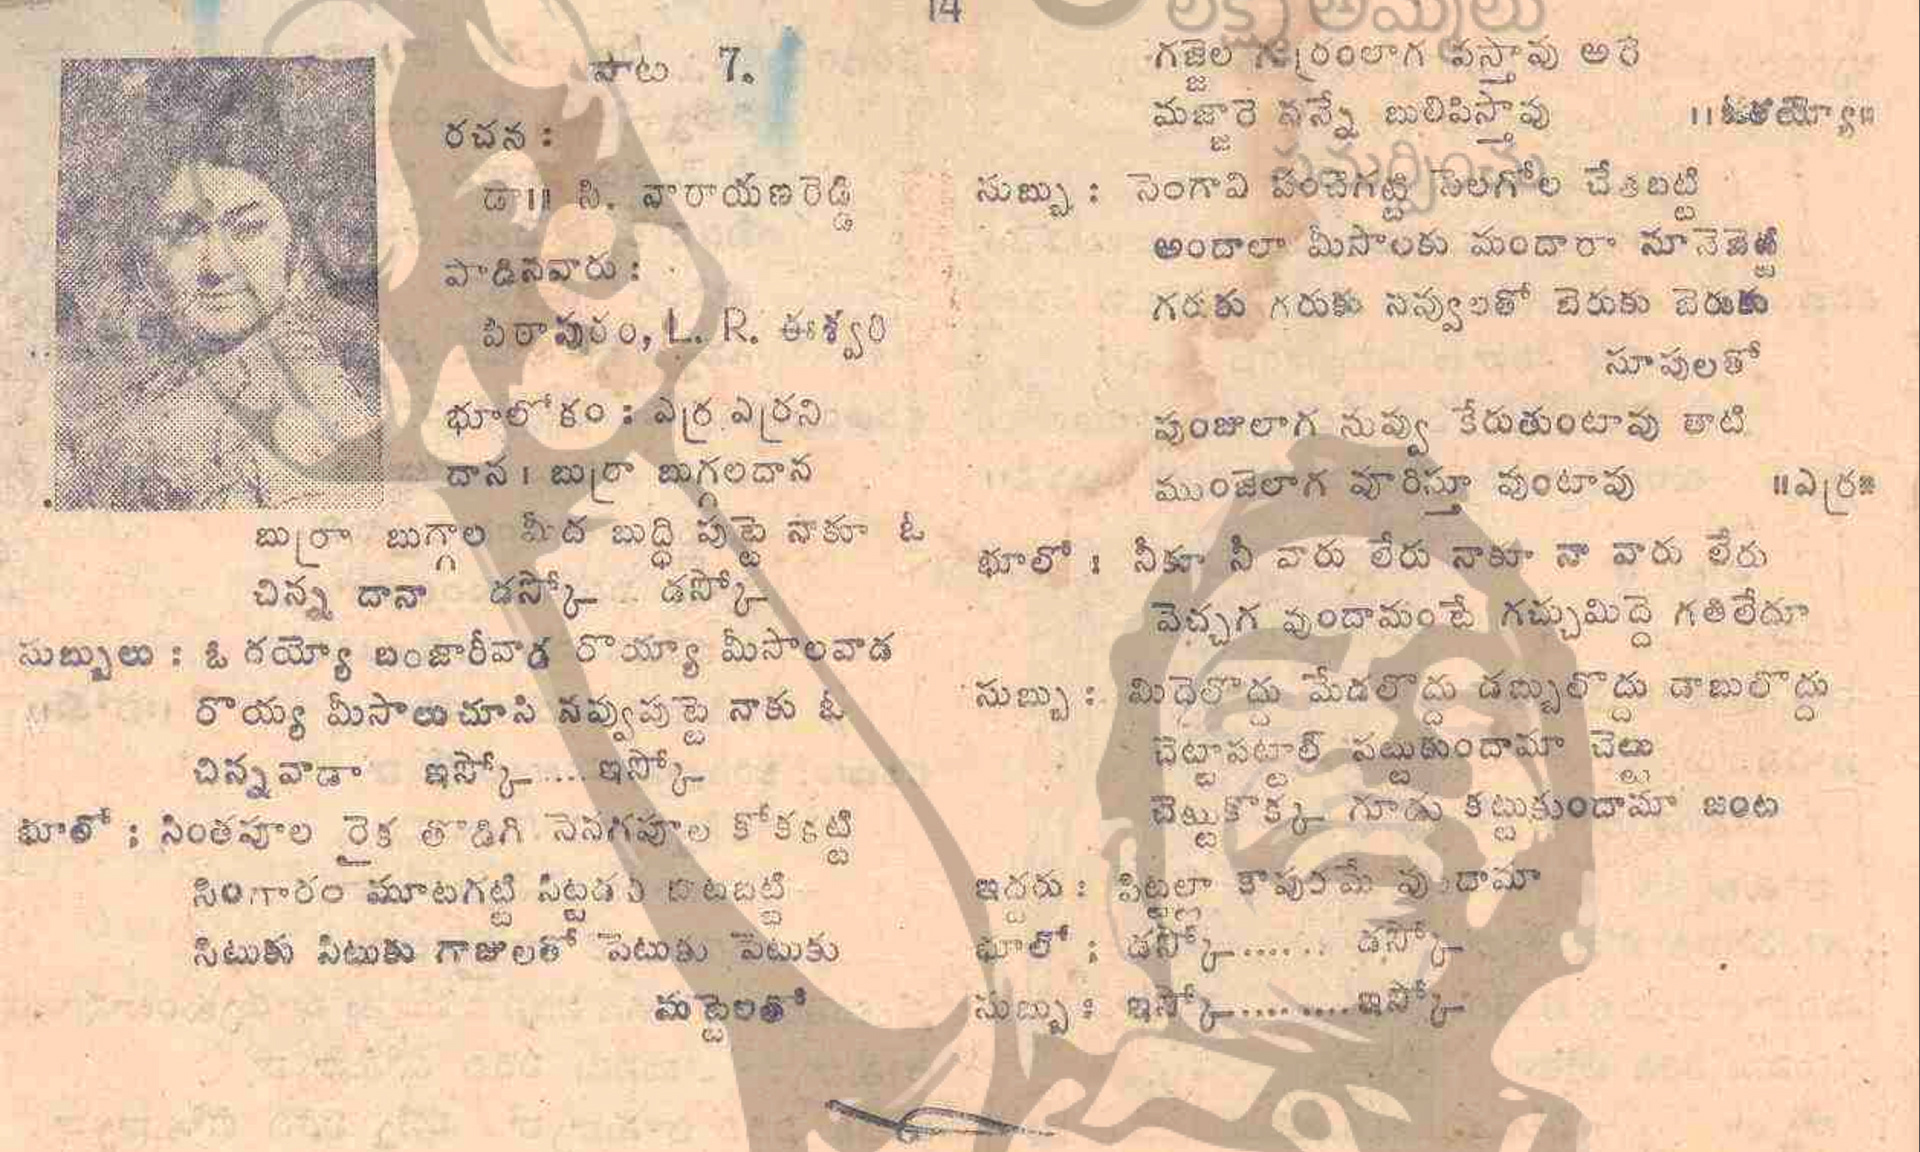 14
పాట 7.
రచన :
డా॥ సి. నారాయణరెడ్డి
పాడినవారు :
పిఠాపురం, L. R. ఈశ్వరి
భూలోకం : ఎర్ర ఎర్రని
దాన। బుర్రా బుగ్గలదాన
బుర్రా బుగ్గాల మీద బుద్ధి పుట్టె నాకూ ఓ
చిన్న దానా డస్కో .... డస్కో
సుబ్బులు : ఓ రయ్యో బంజారీవాడ రొయ్యా మీసాలవాడ
రొయ్య మీసాలుచూసి నవ్వుపుట్టె నాకు ఓ
చిన్నవాడా ఇస్కో .... ఇస్కో
భూలో : సింతపూల రైక తొడిగి నెనగపూల కోకకట్టి
సింగారం మూటగట్టి సిట్టడవి బాటబట్టి
సిటుకు సిటుకు గాజులతో పెటుకు పెటుకు
మట్టెలతో
లక్ష్మీ అమ్మలు
గజ్జెల గుర్రంలాగ వస్తావు అరె
మజ్జారె నన్నే బులిపిస్తావు
సమర్పించు
సుబ్బు : సెంగావి పంచెగట్టి సెలగోల చేతబట్టి
అందాలా మీసాలకు మందారా నూనెబెట్టి
గరుకు గరుకు నవ్వులతో బెరుకు బెరుకు
సూపులతో
పుంజులాగ నువ్వు కేరుతుంటావు తాటి
ముంజెలాగ వూరిస్తూ వుంటావు ॥ఎర్ర॥
భూలో : నీకూ నీ వారు లేరు నాకూ నా వారు లేరు
వెచ్చగ వుందామంటే గచ్చుమిద్దె గతిలేదూ
సుబ్బు : మిధెలొద్దు మేడలొద్దు డబ్బులొద్దు డాబులొద్దు
చెట్టాపట్టాల్ పట్టుకుందామా చెట్టు
చెట్టుకొక్క గూడు కట్టుకుందామా జంట
ఇద్దరు : పిట్టల్లా కాపురమే వుందామా
భూలో : డస్కో...... డస్కో
సుబ్బు : ఇస్కో.........ఇస్కో